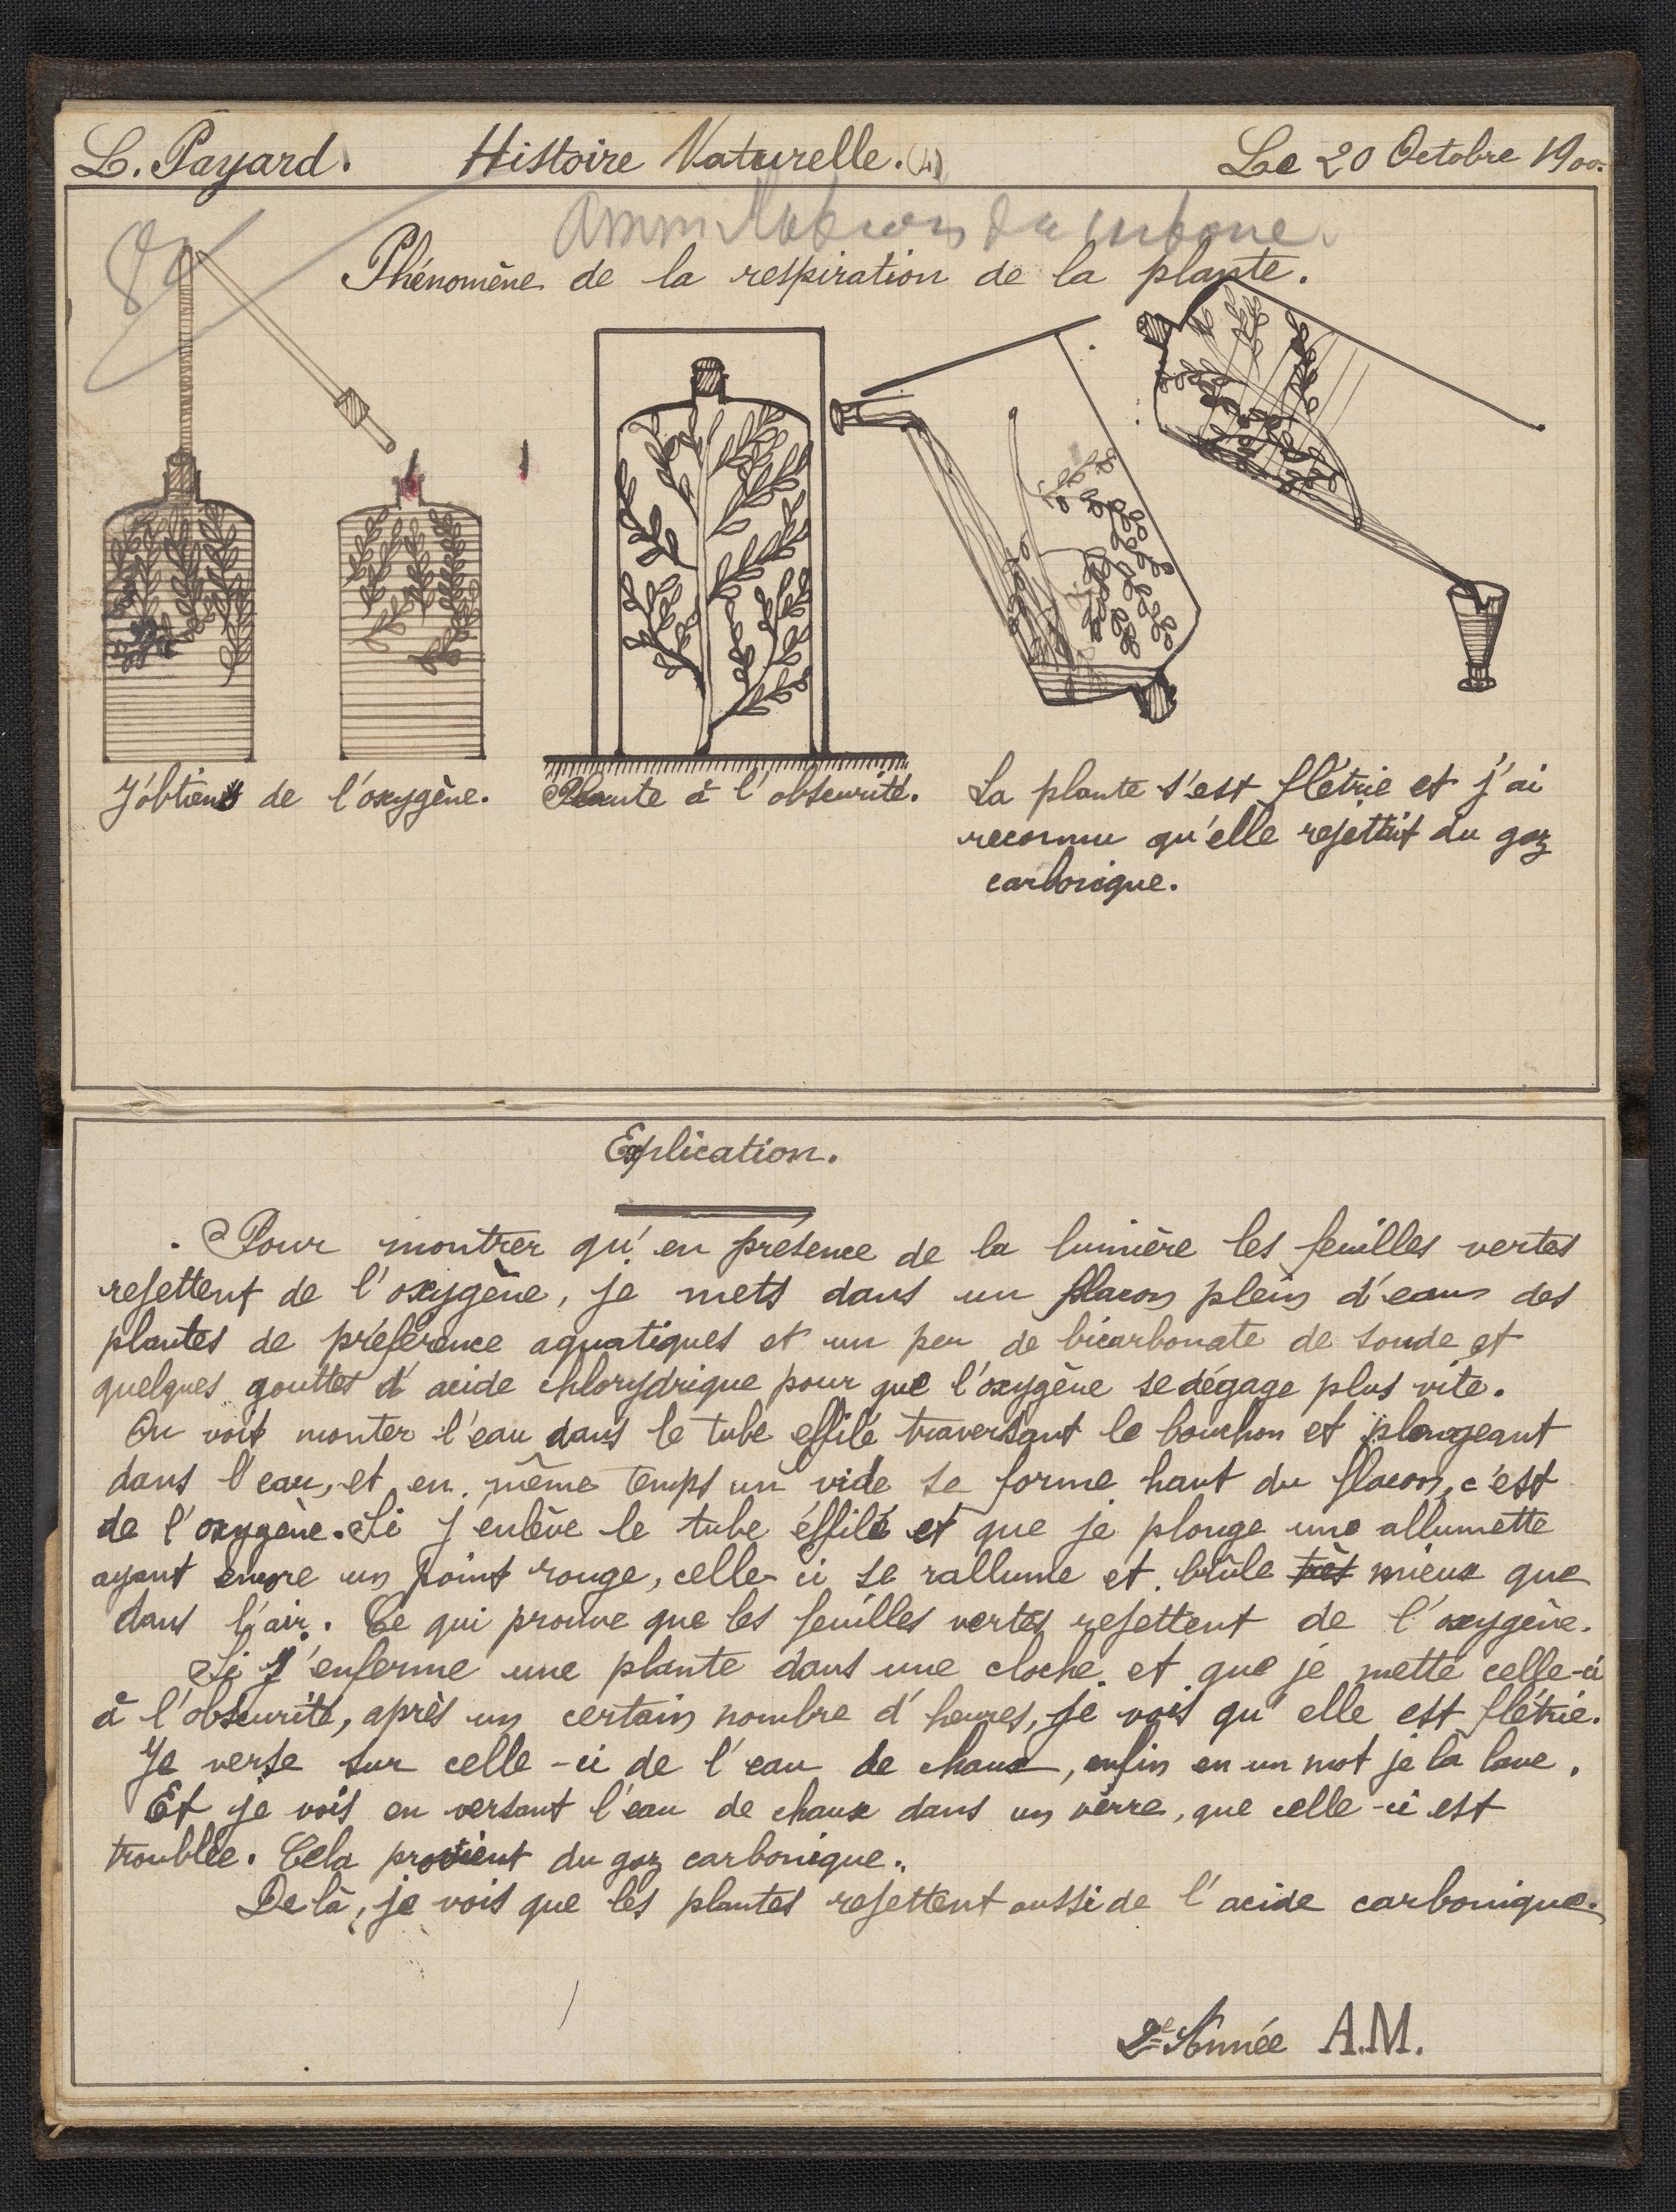 L. Payard. Histoire Naturelle. (4) Le 20 Octobre 1900.
Assimilation du carbone.
Phénomène de la respiration de la plante.
J'obtiens de l'oxygène.
Plante à l'obscurité.
La plante s'est flétrie et j'ai
reconnu qu'elle rejettait du gaz
carbonique.
Explication.
Pour montrer qu'en présence de la lumière les feuilles vertes
rejettent de l'oxygène, je mets dans un flacon plein d'eau des
plantes de préférence aquatiques et un peu de bicarbonate de soude et
quelques gouttes d'acide chlorydrique pour que l'oxygène se dégage plus vite.
On voit monter l'eau dans le tube effilé traversant le bouchon et plongeant
dans l'eau, et en même temps un vide se forme haut du flacon, c'est
de l'oxygène. Si j'enlève le tube éffilé et que je plonge une allumette
ayant encore un point rouge, celle-ci se rallume et brûle très mieux que
dans l'air. Ce qui prouve que les feuilles vertes rejettent de l'oxygène.
Si j'enferme une plante dans une cloche et que je mette celle-ci
à l'obscurité, après un certain nombre d'heures, je vois qu'elle est flétrie.
Je verse sur celle-ci de l'eau de chaux, enfin en un mot je la lave.
Et je vois en versant l'eau de chaux dans un verre, que celle-ci est
troublée. Cela provient du gaz carbonique.
De là, je vois que les plantes rejettent aussi de l'acide carbonique.
2e Année A.M.